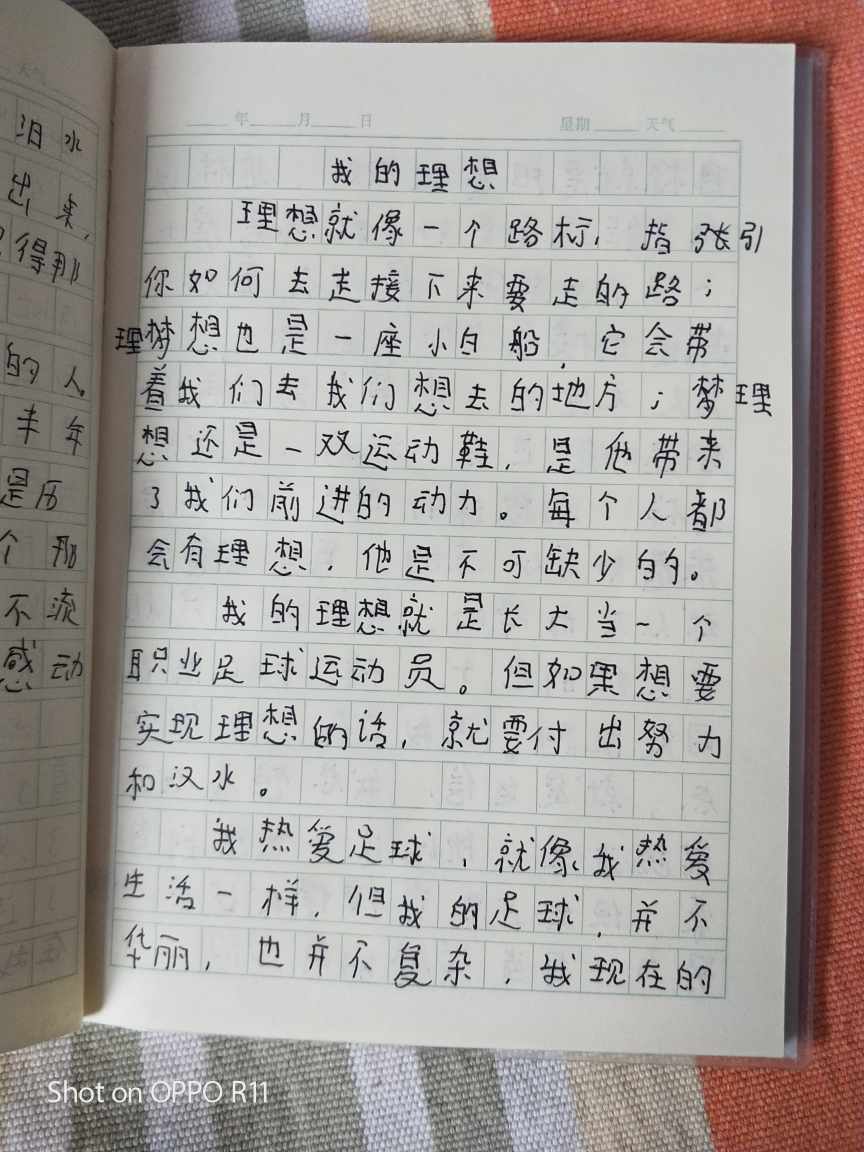 天气
汩水
出来,
得那
的人。
丰年
是历
个那
不流
感动
年 月 日 星期 天气
我的理想
理想就像一个路标,指张引
你如何去走接下来要走的路;
理梦想也是一座小白船,它会带
着我们去我们想去的地方;梦理
想还是一双运动鞋,是他带来
了我们前进的动力。每个人都
会有理想,他是不可缺少的。
我的理想就是长大当一个
职业足球运动员。但如果想要
实现理想的话,就要付出努力
和汉水。
我热爱足球,就像我热爱
生活一样,但我的足球,并不
华丽,也并不复杂,我现在的
Shot on OPPO R11